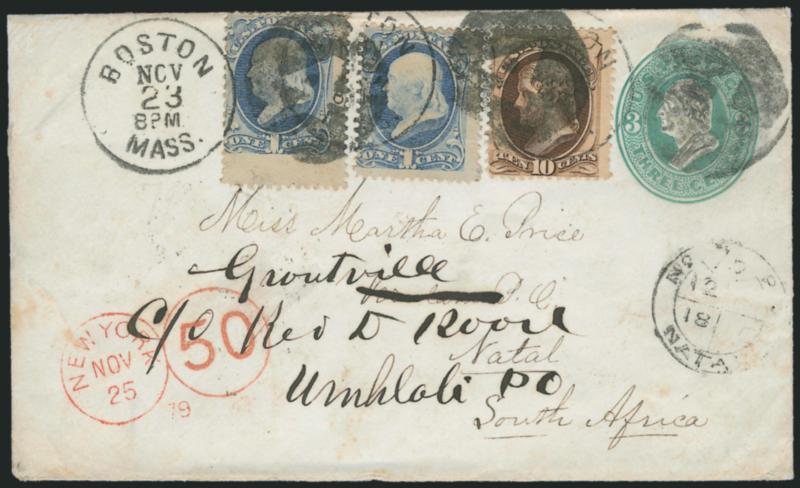 BOSTON
NOV
23
8PM.
MASS.
ONE 1 CENT
ONE 1 CENT
TEN 10 CENTS
U.S.
3
THREE CE
Miss Martha E. Price
Groutville
P.O.
c/o Rev D Rood
Natal
Umhlali PO
South Africa
NEW YORK
NOV
25
79
50
12
18
NATA